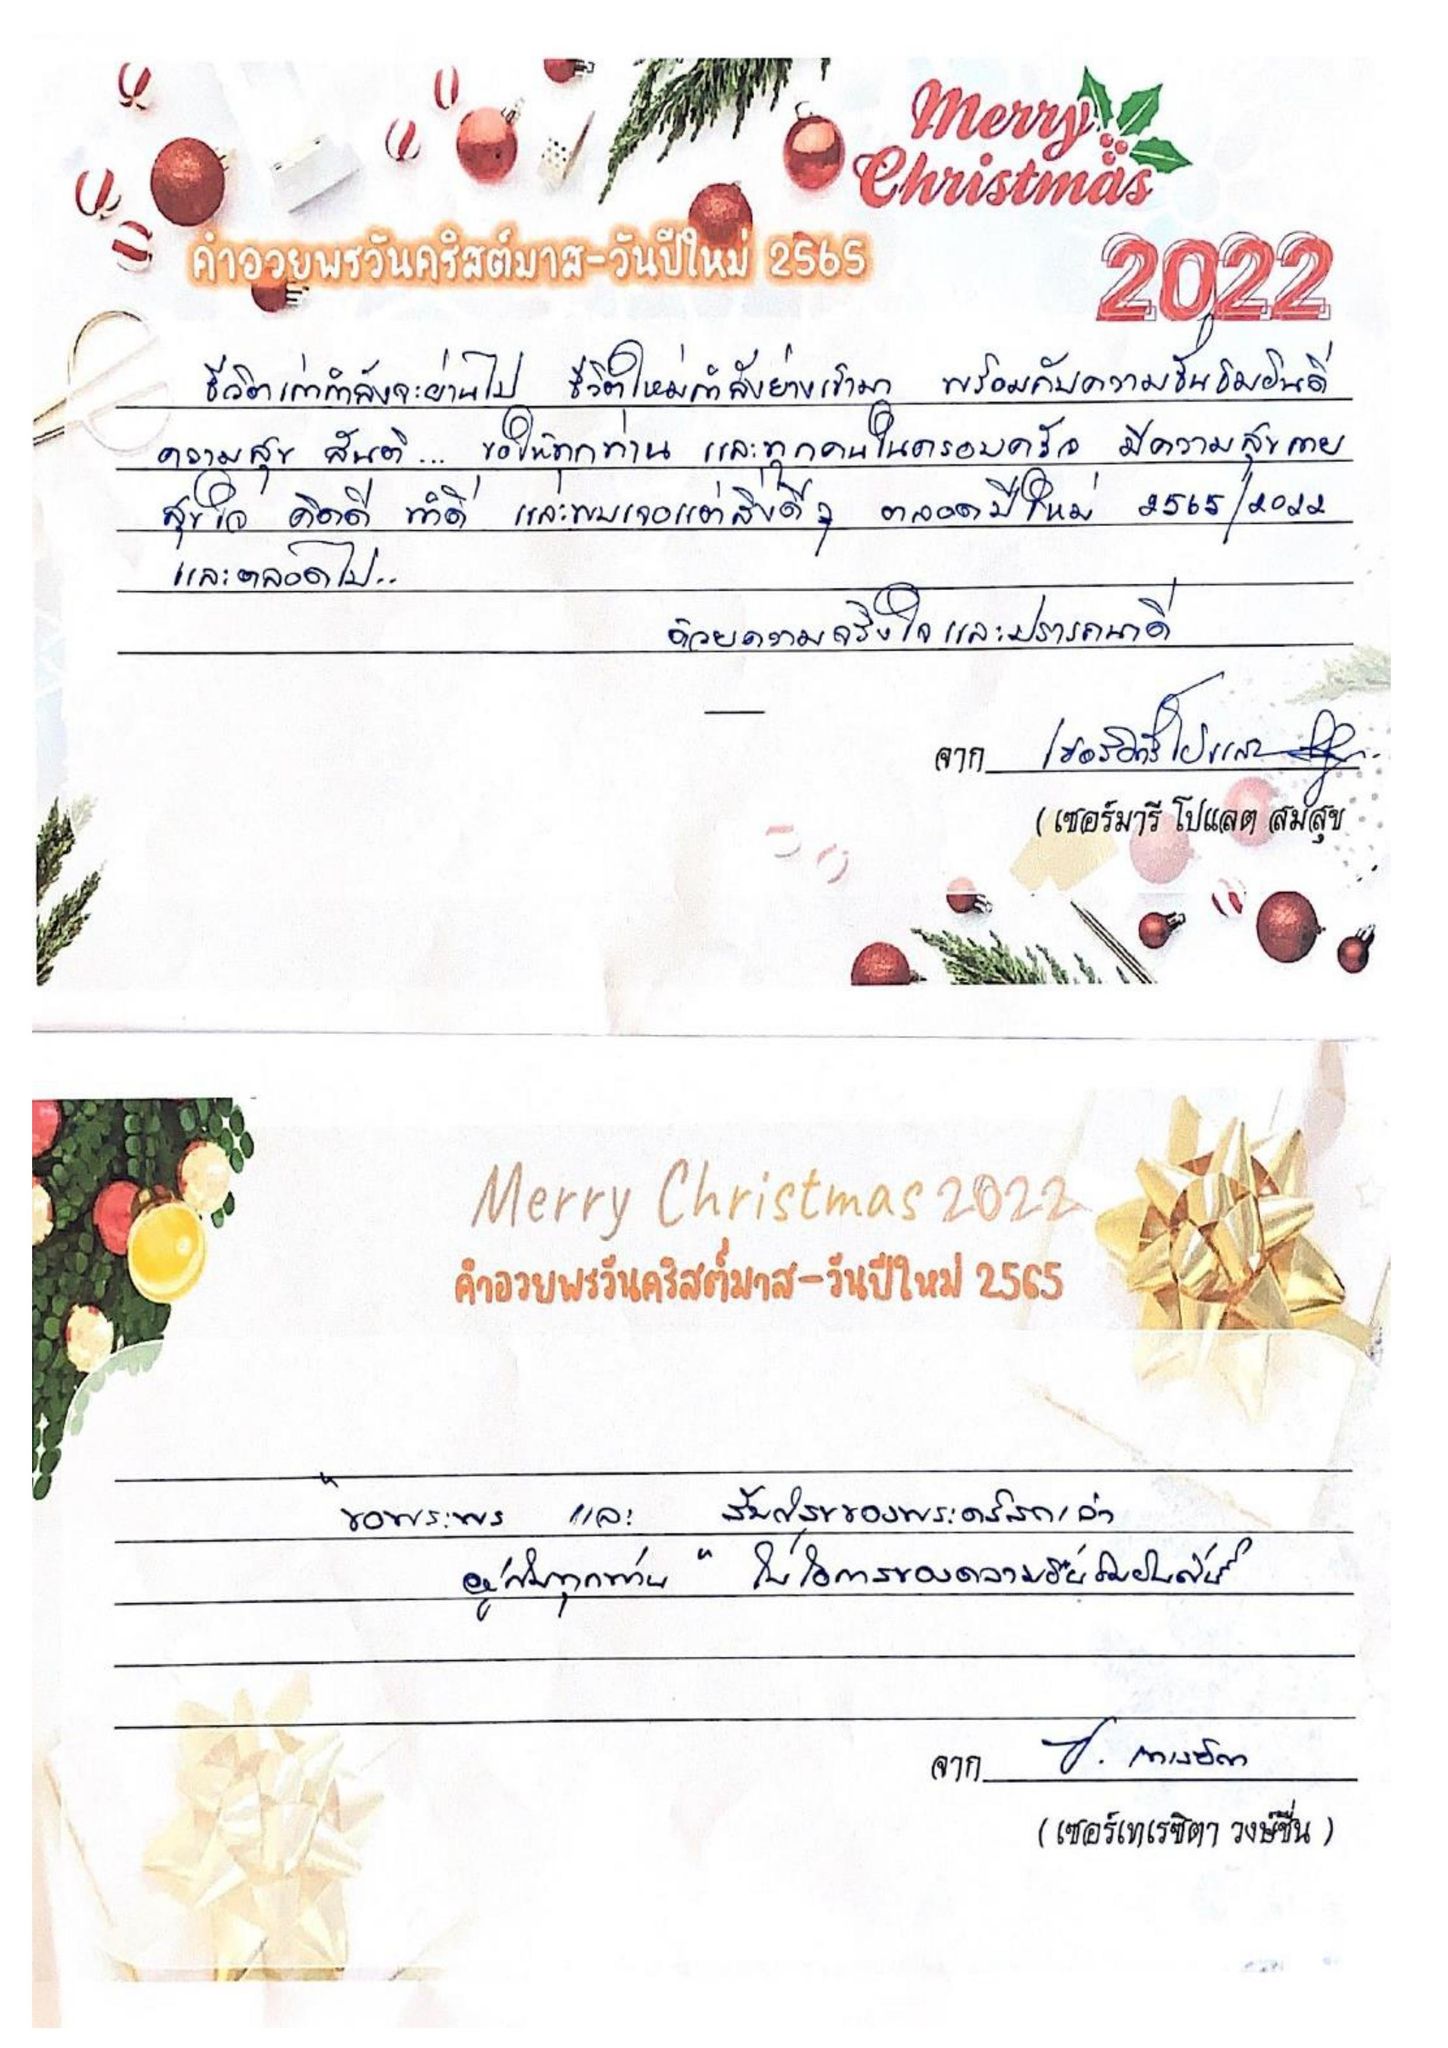 Merry
Christmas
คำอวยพรวันคริสต์มาส-วันปีใหม่ 2565
2022
ชีวิตเก่ากำลังจะผ่านไป ชีวิตใหม่กำลังย่างเข้ามา พร้อมกับความชื่นชมยินดี
ความสุข สันติ... ขอให้ทุกท่าน และทุกคนในครอบครัว มีความสุขกาย
สุขใจ คิดดี ทำดี และพบเจอแต่สิ่งดีๆ ตลอดปีใหม่ 2565/2022
และตลอดไป..
ด้วยความจริงใจและปรารถนาดี
จาก เซอร์มารี โปแลต
( เซอร์มารี โปแลต สมสุข
Merry Christmas 2022
คำอวยพรวันคริสต์มาส-วันปีใหม่ 2565
"ขอพระพร และ สันติสุขของพระคริสตเจ้า
อยู่กับทุกท่าน" ในโอกาสของความชื่นชมยินดีนี้
จาก ซ. เทเรซิตา
( เซอร์เทเรซิตา วงษ์ชื่น )